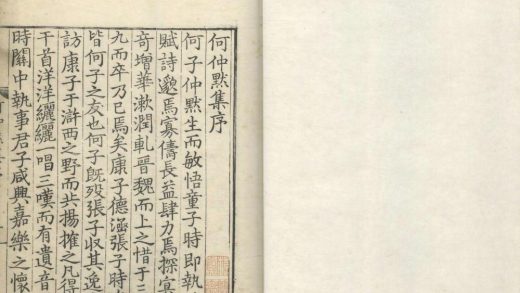 何仲默集序
何子仲默生而敏悟童子時即執
賦詩邈焉寡儔長益肆力焉探冥
奇增華漱潤軋晉魏而上之惜于三
九而卒乃已焉矣康子德涵張子時
皆何子之友也何子既歿張子收其逸
訪康子于滸西之野而共揚搉之凡得
干首洋洋纚纚一唱三嘆而有遺音
時關中執事君子咸興嘉樂之懷